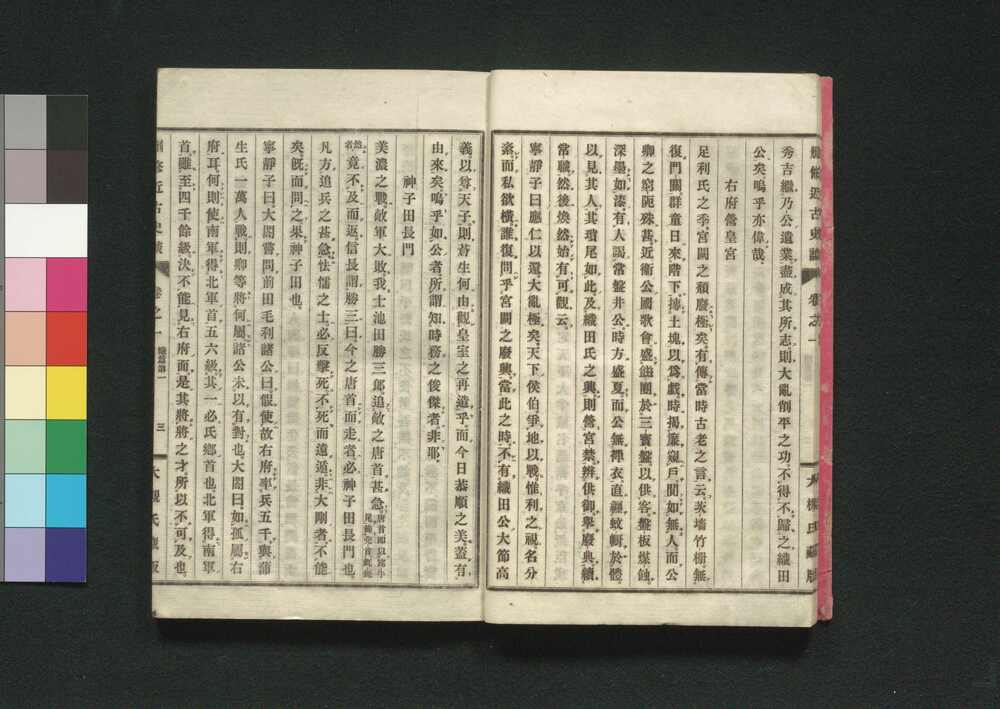 刪修近古史談 卷之一 大槻氏藏版
秀吉繼乃公遺業、盡成其所志、則大亂削平之功、不得不歸之織田
公矣、嗚乎亦偉哉、
右府營皇宮
足利氏之季、宮闕之頽廢極矣、有傳當時古老之言云、茨墻竹柵、無
復門關、群童日來階下、摶土塊以爲戲、時揭簾窺戶、閴如無人、而公
卿之窮阨殊甚、近衞公國歌會、盛 於三寶盤以供客、盤板煤蝕、
深墨如漆、有人謁常盤井公、時方盛夏、而公無襌衣、直 蚊幬於體、
以見其人、其瑣尾如此、及織田氏之興、則營宮禁、辨供御、擧廢典、續
常職、然後煥然始有可觀云、
寧靜子曰、應仁以還、大亂極矣、天下侯伯、爭地以戰、惟利之視、名分
紊而私欲橫、誰復問乎宮闕之廢興、當此之時、不有織田公大節高
義以尊天子、則蒼生何由觀皇室之再造乎、而今日恭順之美、蓋有
由來矣、嗚乎如公者、所謂知時務之俊傑者非耶、
神子田長門
美濃之戰、敵軍大敗、我士池田勝三郎、追敵之唐首甚急、唐首卽以
者竟不及而返、信長謂勝三曰、今之唐首而走者、必神子田長門也、
凡方追兵之甚急、怯懦之士、必反擊死、不死而遠遁、非大剛者不能
矣、旣而問之、果神子田也、
寧靜子曰、大閤嘗問前田毛利諸公曰、假使故右府率兵五千、與蒲
生氏一萬人戰、則卿等將何屬、諸公未以有對也、大閤曰、如孤屬右
府耳、何則使南軍得北軍首五六級、其一必氏鄕首也、北軍得南軍
首、雖至四千餘級、決不能見右府、而是其將將之才、所以不可及也、
刪修近古史談 卷之一 三 大槻氏藏版